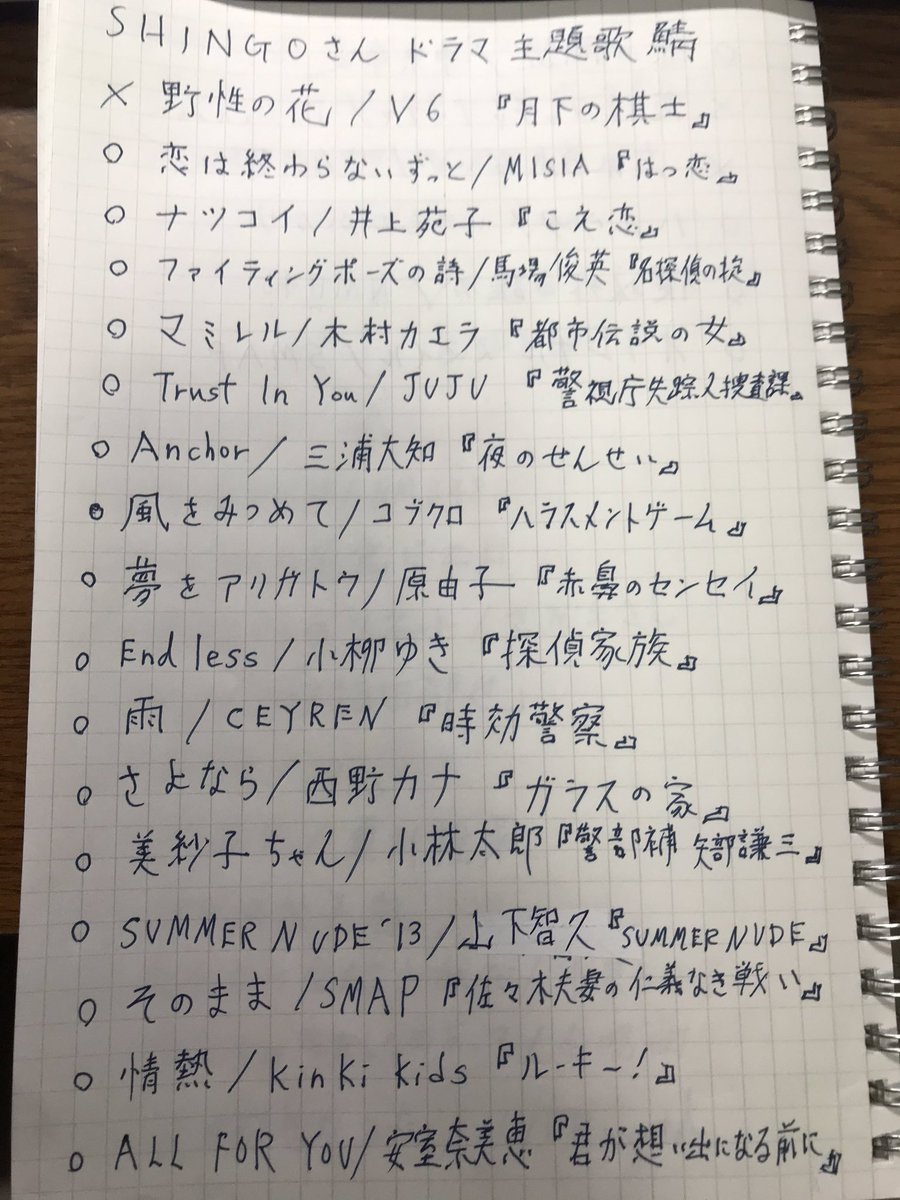 SHINGOさん ドラマ 主題歌 鯖
× 野性の花 / V6 『月下の棋士』
○ 恋は終わらないずっと / MISIA 『はつ恋』
○ ナツコイ / 井上苑子 『こえ恋』
○ ファイティングポーズの詩 / 馬場俊英 『名探偵の掟』
○ マミレル / 木村カエラ 『都市伝説の女』
○ Trust In You / JUJU 『警視庁失踪人捜査課』
○ Anchor / 三浦大知 『夜のせんせい』
○ 風をみつめて / コブクロ 『ハラスメントゲーム』
○ 夢をアリガトウ / 原由子 『赤鼻のセンセイ』
○ Endless / 小柳ゆき 『探偵家族』
○ 雨 / CEYREN 『時効警察』
○ さよなら / 西野カナ 『ガラスの家』
○ 美紗子ちゃん / 小林太郎 『警部補 矢部謙三』
○ SUMMER NUDE '13 / 山下智久 『SUMMER NUDE』
○ そのまま / SMAP 『佐々木夫妻の仁義なき戦い』
○ 情熱 / KinKi kids 『ルーキー!』
○ ALL FOR YOU / 安室奈美恵 『君が想い出になる前に』